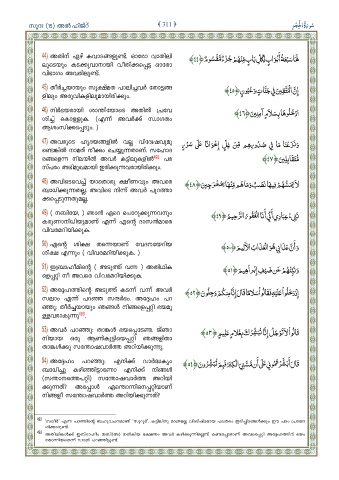 സൂറ (15) അൽ ഹിജ്ർ
311
سُورَةُ الْحِجْر
44) അതിന് ഏഴ് കവാടങ്ങളുണ്ട്. ഓരോ വാതിലി
ലൂടെയും കടക്കുവാനായി വീതിക്കപ്പെട്ട ഓരോ
വിഭാഗം അവരിലുണ്ട്.
لَهَا سَبْعَةُ أَبْوَابٍ لِكُلِّ بَابٍ مِنْهُمْ جُزْءٌ مَقْسُومٌ ﴿٤٤﴾
45) തീർച്ചയായും സൂക്ഷ്മത പാലിച്ചവർ തോട്ടങ്ങ
ളിലും അരുവികളിലുമായിരിക്കും.
إِنَّ الْمُتَّقِينَ فِي جَنَّاتٍ وَعُيُونٍ ﴿٤٥﴾
46) നിർഭയരായി ശാന്തിയോടെ അതിൽ പ്രവേ
ശിച്ച് കൊള്ളുക. (എന്ന് അവർക്ക് സ്വാഗതം
ആശംസിക്കപ്പെടും. )
ادْخُلُوهَا بِسَلَامٍ آمِنِينَ ﴿٤٦﴾
47) അവരുടെ ഹൃദയങ്ങളിൽ വല്ല വിദ്വേഷവുമു
ണ്ടെങ്കിൽ നാമത് നീക്കം ചെയ്യുന്നതാണ്. സഹോദ
രങ്ങളെന്ന നിലയിൽ അവർ കട്ടിലുകളിൽ പര
സ്പരം അഭിമുഖമായി ഇരിക്കുന്നവരായിരിക്കും.
وَنَزَعْنَا مَا فِي صُدُورِهِمْ مِنْ غِلٍّ إِخْوَانًا عَلَىٰ سُرُرٍ
مُتَقَابِلِينَ ﴿٤٧﴾
48) അവിടെവെച്ച് യാതൊരു ക്ഷീണവും അവരെ
ബാധിക്കുന്നതല്ല. അവിടെ നിന്ന് അവർ പുറത്താ
ക്കപ്പെടുന്നതുമല്ല.
لَا يَمَسُّهُمْ فِيهَا نَصَبٌ وَمَا هُمْ مِنْهَا بِمُخْرَجِينَ ﴿٤٨﴾
49) ( നബിയേ, ) ഞാൻ ഏറെ പൊറുക്കുന്നവനും
കരുണാനിധിയുമാണ് എന്ന് എന്റെ ദാസൻമാരെ
വിവരമറിയിക്കുക.
نَبِّئْ عِبَادِي أَنِّي أَنَا الْغَفُورُ الرَّحِيمُ ﴿٤٩﴾
50) എന്റെ ശിക്ഷ തന്നെയാണ് വേദനയേറിയ
ശിക്ഷ എന്നും ( വിവരമറിയിക്കുക. )
وَأَنَّ عَذَابِي هُوَ الْعَذَابُ الْأَلِيمُ ﴿٥٠﴾
51) ഇബ്രാഹീമിന്റെ ( അടുത്ത് വന്ന ) അതിഥിക
ളെപ്പറ്റി നീ അവരെ വിവരമറിയിക്കുക.
وَنَبِّئْهُمْ عَنْ ضَيْفِ إِبْرَاهِيمَ ﴿٥١﴾
52) അദ്ദേഹത്തിന്റെ അടുത്ത് കടന്ന് വന്ന് അവർ
സലാം എന്ന് പറഞ്ഞ സന്ദർഭം. അദ്ദേഹം പറ
ഞ്ഞു: തീർച്ചയായും ഞങ്ങൾ നിങ്ങളെപ്പറ്റി ഭയമു
ള്ളവരാകുന്നു.
إِذْ دَخَلُوا عَلَيْهِ فَقَالُوا سَلَامًا قَالَ إِنَّا مِنْكُمْ وَجِلُونَ ﴿٥٢﴾
53) അവർ പറഞ്ഞു: താങ്കൾ ഭയപ്പെടേണ്ട. ജ്ഞാ
നിയായ ഒരു ആൺകുട്ടിയെപ്പറ്റി ഞങ്ങളിതാ
താങ്കൾക്കു സന്തോഷവാർത്ത അറിയിക്കുന്നു.
قَالُوا لَا تَوْجَلْ إِنَّا نُبَشِّرُكَ بِغُلَامٍ عَلِيمٍ ﴿٥٣﴾
54) അദ്ദേഹം പറഞ്ഞു: എനിക്ക് വാർദ്ധക്യം
ബാധിച്ചു കഴിഞ്ഞിട്ടാണോ എനിക്ക് നിങ്ങൾ
(സന്താനത്തെപറ്റി) സന്തോഷവാർത്ത അറിയി
ക്കുന്നത്? അപ്പോൾ എന്തൊന്നിനെപ്പറ്റിയാണ്
നിങ്ങളീ സന്തോഷവാർത്ത അറിയിക്കുന്നത്?
قَالَ أَبَشَّرْتُمُونِي عَلَىٰ أَنْ مَسَّنِيَ الْكِبَرُ فَبِمَ تُبَشِّرُونَ ﴿٥٤﴾